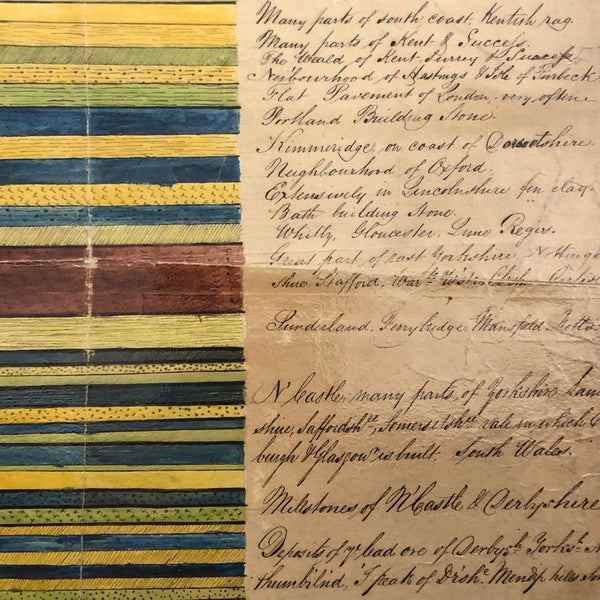 Many parts of south coast, Kentish rag.
Many parts of Kent & Success.
The Weald of Kent, Surrey & Success
Neibourhood of Hastings & Isle of Purbeck
Flat Pavement of London, very often.
Portland Building Stone.
Kimmeridge, on coast of Dorsetshire.
Neighbourhood of Oxford.
Extensively in Lincolnshire fen clay.
Bath building stone.
Whitby, Gloucester, Lyme Regis.
Great part of east Yorkshire, Notting
Shire Stafford, War
Sunderland, Ferrybridge, Mansfeld, Notts
N'Castle, many parts of Yorkshire, Lan
shire, Saffordshe, Somersetshe vale in which E
burgh & Glasgow is built. South Wales.
Millstones of N'Castle & Derbyshire
Deposits of ye Lead ore of Derbysh Yorksh N
thumbl'nd, Mendip hills Som